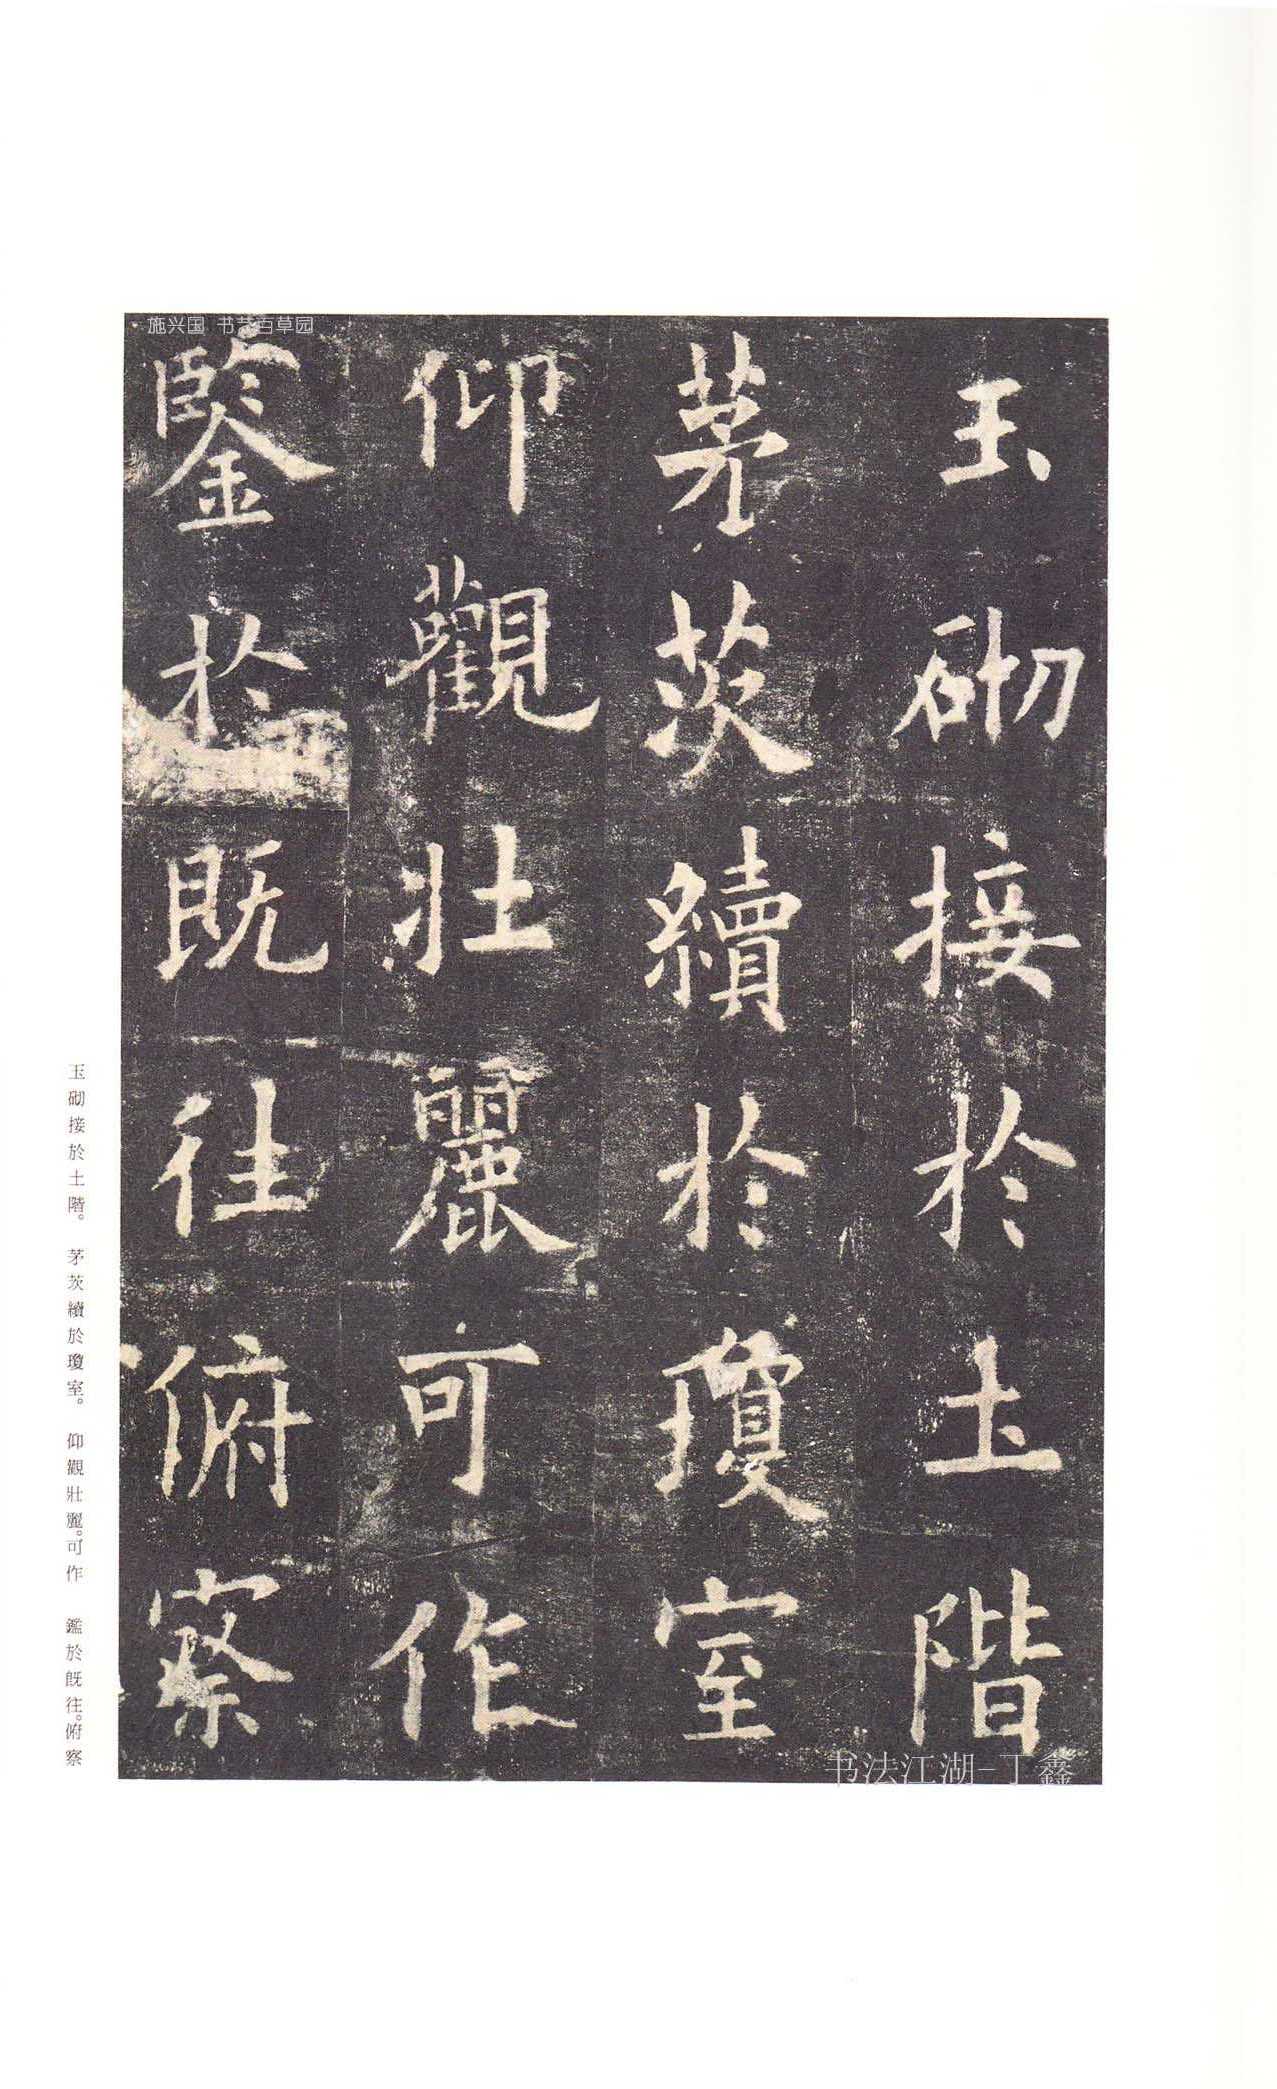 施兴国 书艺百草园
玉砌接於土階
茅茨續於瓊室
仰觀壯麗可作
鑒於既往俯察
玉砌接於土階。茅茨續於瓊室。仰觀壯麗。可作 鑑於旣往。俯察
书法江湖-丁鑫